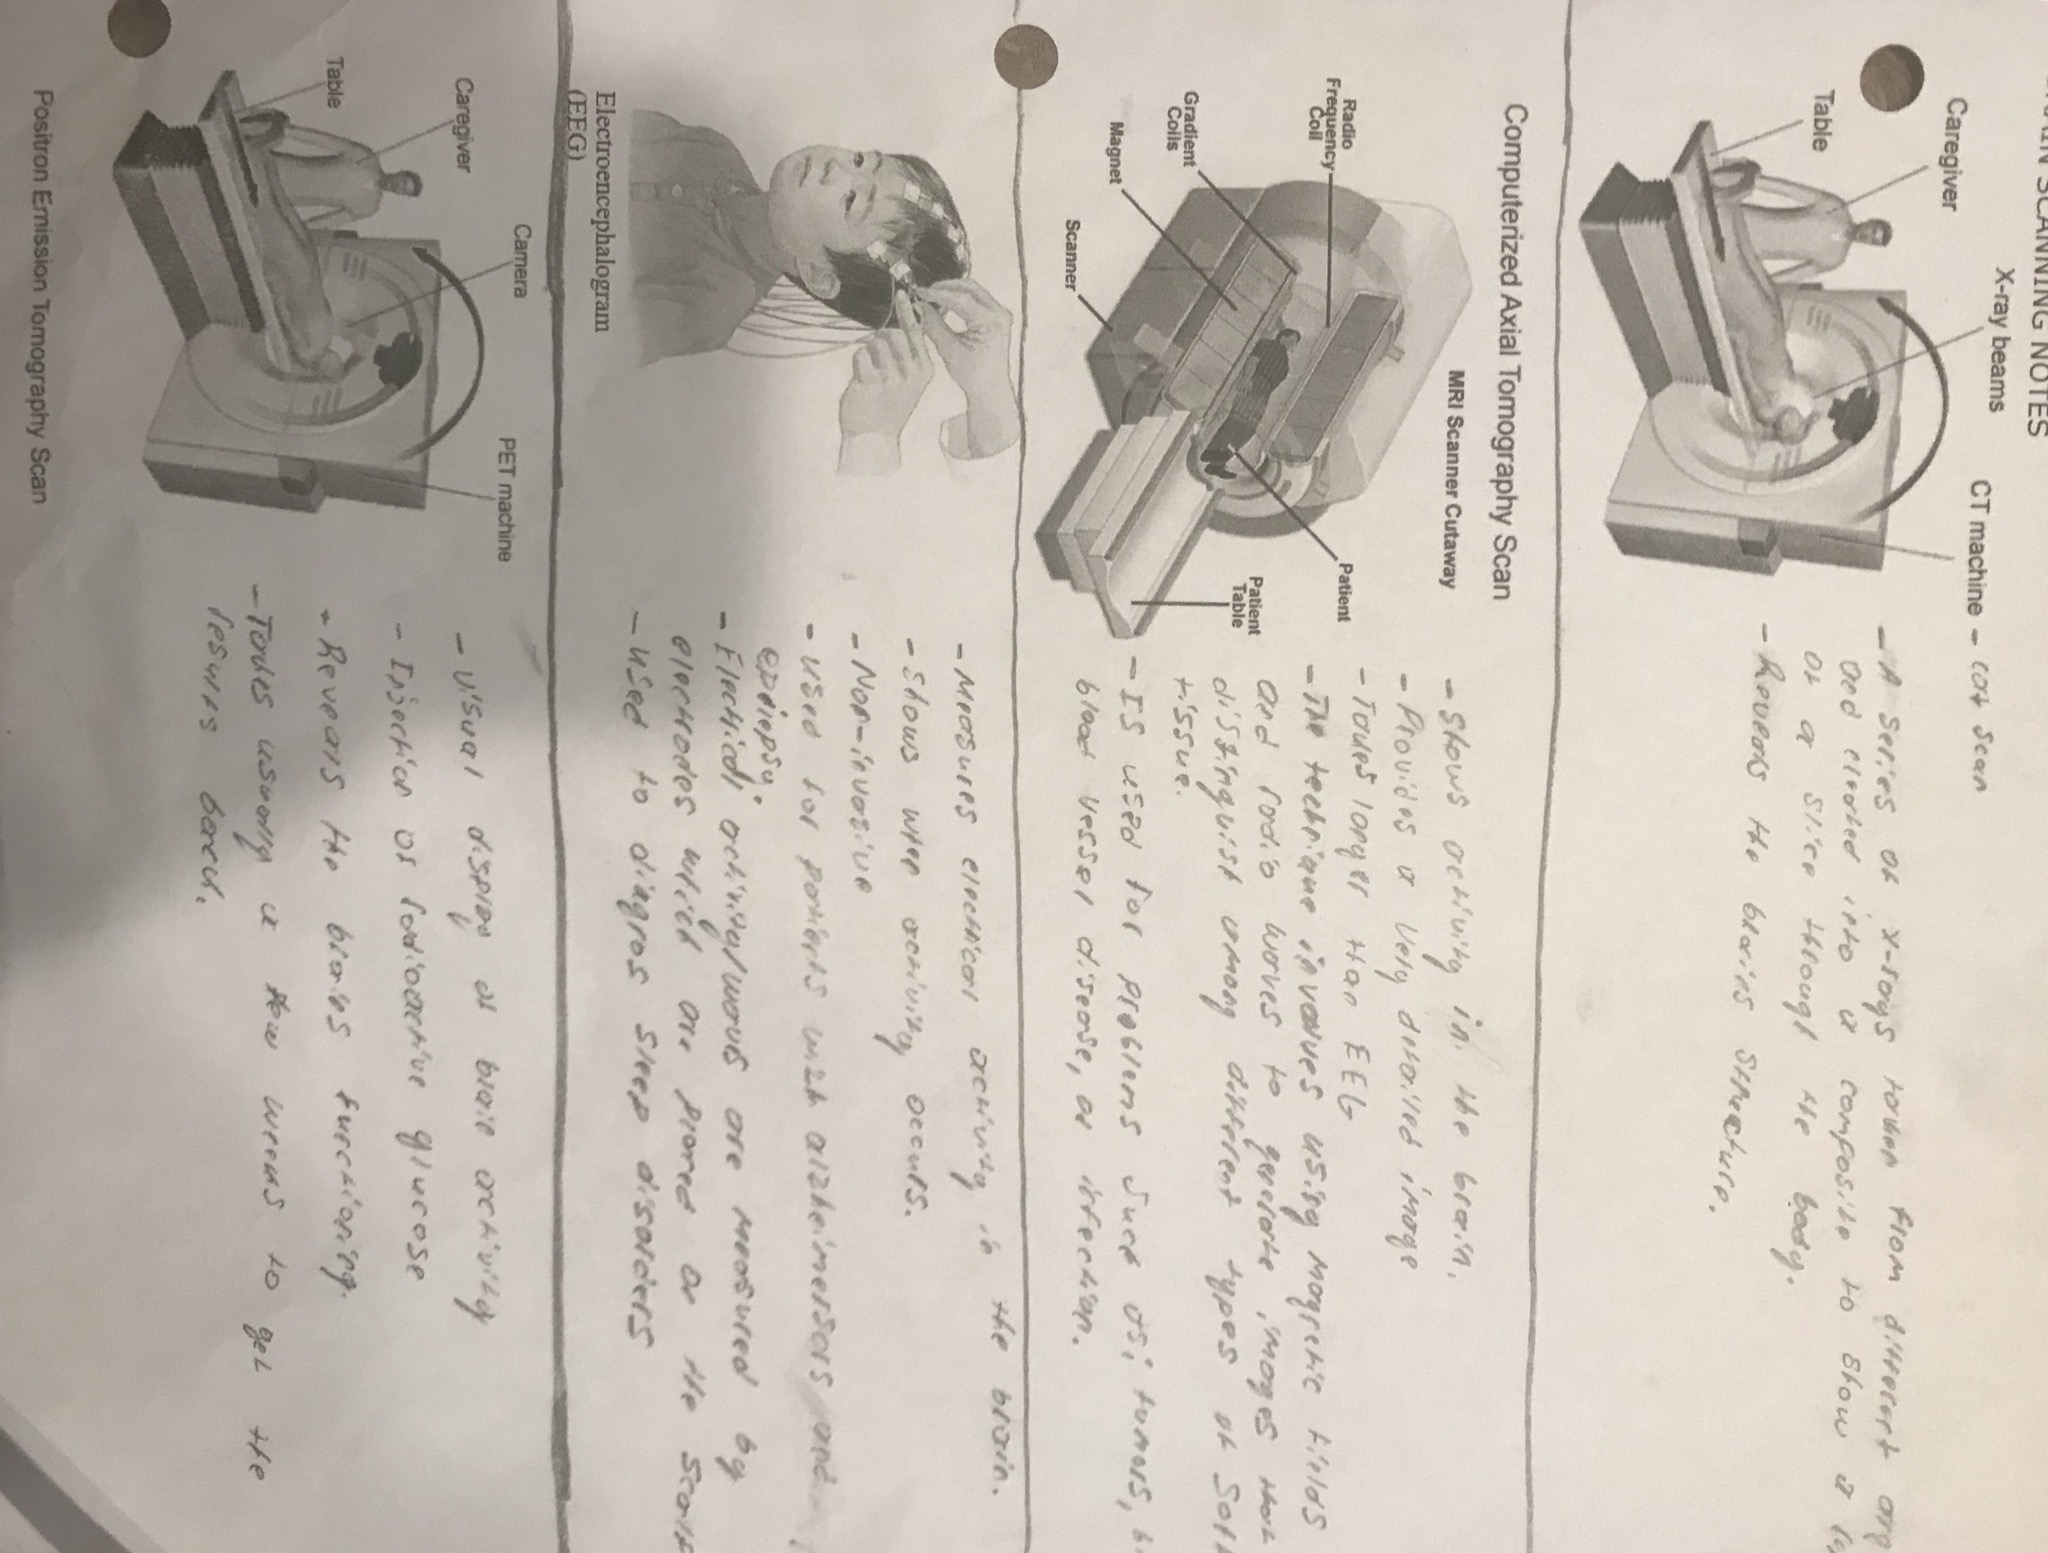 SCANNING NOTES
Caregiver
X-ray beams
CT machine - cat scan
Table
- A series of x-rays taken from different
and created into a composite to show a
of a slice through the body.
- Reveals the brains structure.
Computerized Axial Tomography Scan
MRI Scanner Cutaway
Radio
Frequency
Coil
Gradient
Coils
Magnet
Scanner
Patient
Patient
Table
- Shows activity in the brain.
- Provides a very detailed image
- Takes longer than EEG
- The technique involves using magnetic fields
and radio waves to generate images that
distinguish among different types of soft
tissue.
- Is used for problems such as: tumors,
blood vessel disease, or infection.
Electroencephalogram
(EEG)
- Measures electrical activity in the brain.
- Shows when activity occurs.
- Non-invasive
- Used for patients with alzheimersors/and
epilepsy.
- Electrical activity/waves are measured by
electrodes which are placed on the scalp
- Used to diagnos sleep disorders
Caregiver
Camera
PET machine
Table
Positron Emission Tomography Scan
- Visual display of brain activity
- Injection of radioactive glucose
- Reveals the brains functioning.
- Takes usually a few weeks to get the
results back.